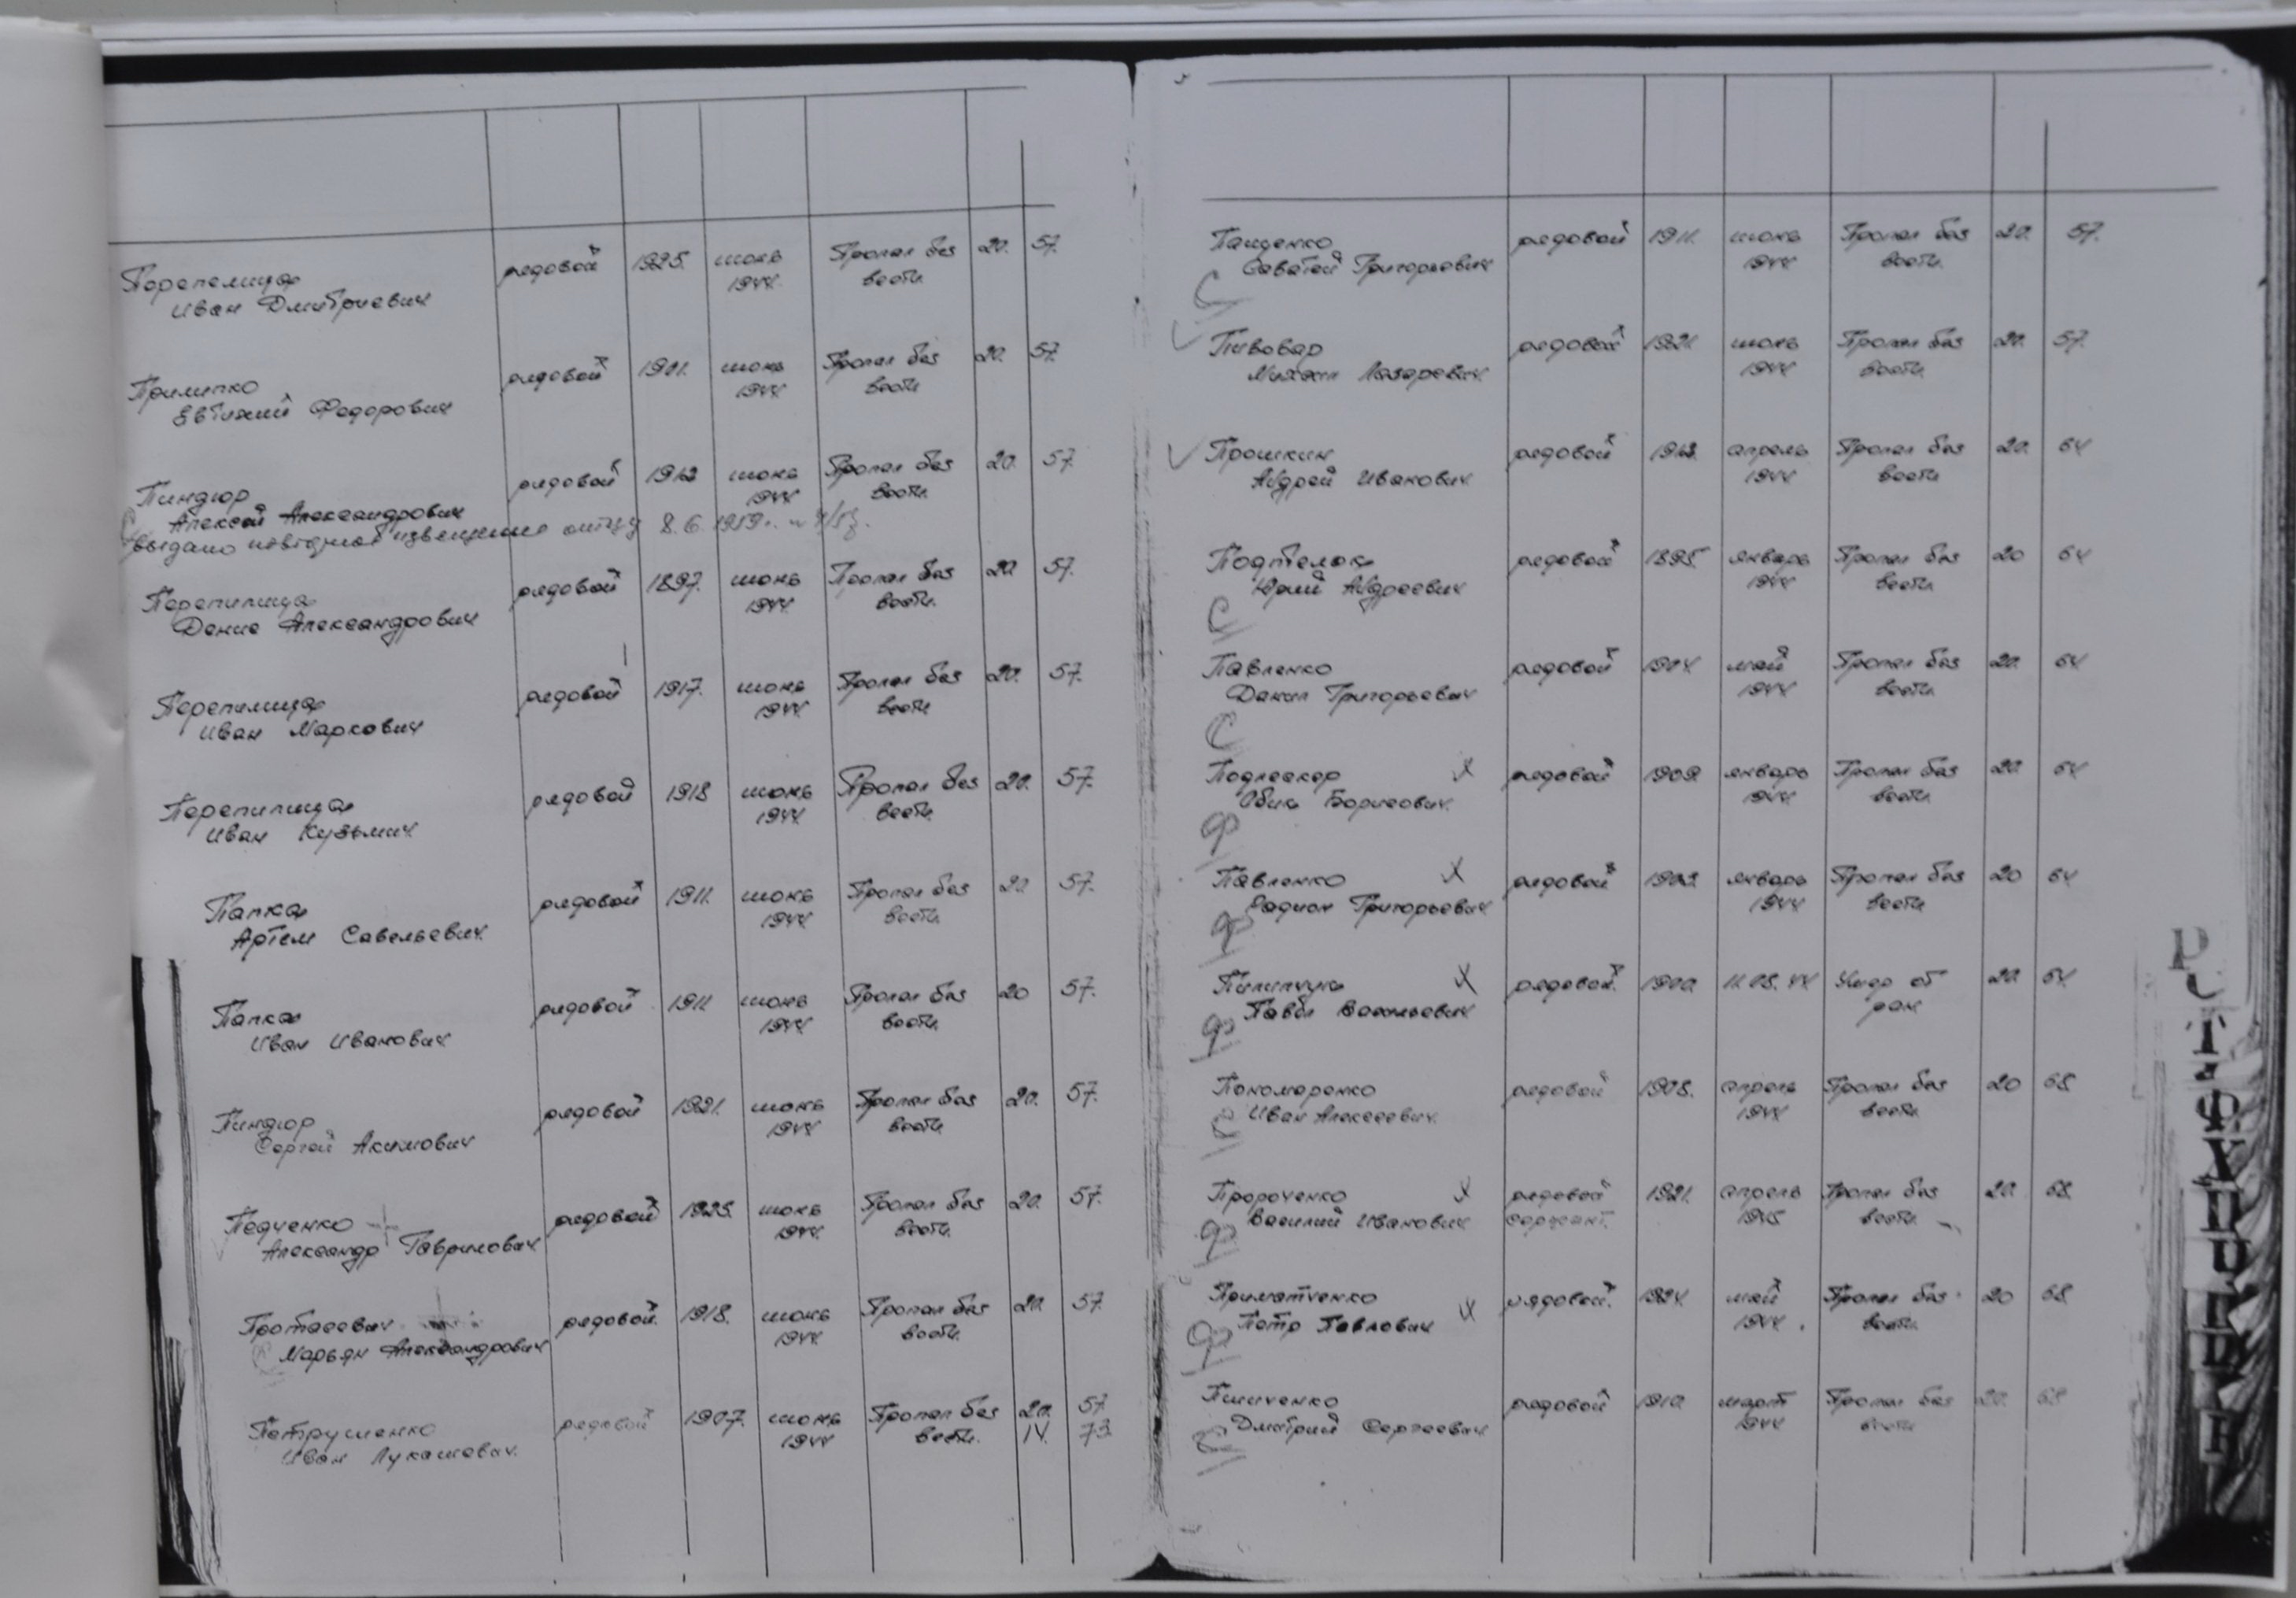 Перепелица рядовой 1925. июнь Пропал без 20. 57.
Иван Дмитриевич 1944. вести.
Прилипко рядовой 1901. июнь Пропал без 20. 57.
Евтихий Федорович 1944. вести
Пиндюр рядовой июнь Пропал без 20. 57.
Алексей Александрович 1944 вести.
выдано извещение отцу 8.6.1959г.
Перепилица рядовой 1897. июнь Пропал без 20 57.
Денис Александрович 1944. вести.
Перепилица рядовой 1917. июнь Пропал без 20. 57.
Иван Маркович 1944. вести
Перепилица рядовой 1918 июнь Пропал без 20. 57.
Иван Кузьмич 1944. вести.
Папка рядовой 1911. июнь Пропал без 20 57.
Артем Савельевич 1944. вести.
Папка рядовой 1911 июнь Пропал без 20 57.
Иван Иванович 1944. вести.
Пиндюр рядовой 1921. июнь Пропал без 20. 57.
Сергей Акимович 1944 вести.
Педченко рядовой 1925. июнь Пропал без 20. 57.
Александр Гаврилович 1944. вести.
Протасевич рядовой 1918. июнь Пропал без 20. 57.
Марьян Александрович 1944. вести.
Петрушенко рядовой 1907. июнь Пропал без 20. 57
Иван Лукашевич. 1944 вести. 14. 73
Пащенко рядовой 1911. июнь Пропал без 20. 57.
Саватей Григорьевич 1944. вести.
Пивовар рядовой 1921. июнь Пропал без 20. 57.
Михаил Лазаревич 1944 вести.
Прошкин рядовой апрель Пропал без 20. 64
Андрей Иванович 1944 вести
рядовой 1895. январь Пропал без 20 64
Юрий Андреевич 1944 вести
Павленко рядовой 1904. май Пропал без 20. 64
Данил Григорьевич 1944. вести.
Подлескер х рядовой 1909. январь Пропал без 20 64
Борисович. 1944. вести.
Павленко х рядовой 1903. январь Пропал без 20 64
Родион Григорьевич 1944 вести
Пилипчук х рядовой. 1900. 11.03.44 Умер от 20. 64
Павел Васильевич ран
Пономаренко рядовой 1908. апрель Пропал без 20 68
Иван Алексеевич. 1944 вести.
Пророченко х рядовой 1921. апрель Пропал без 20. 68.
Василий Иванович сержант. 1945 вести.
Приматченко рядовой. 1924. май Пропал без 20 68.
Петр Павлович х 1944. вести.
рядовой 1910. март Пропал без 20. 68
Дмитрий Сергеевич 1944 вести